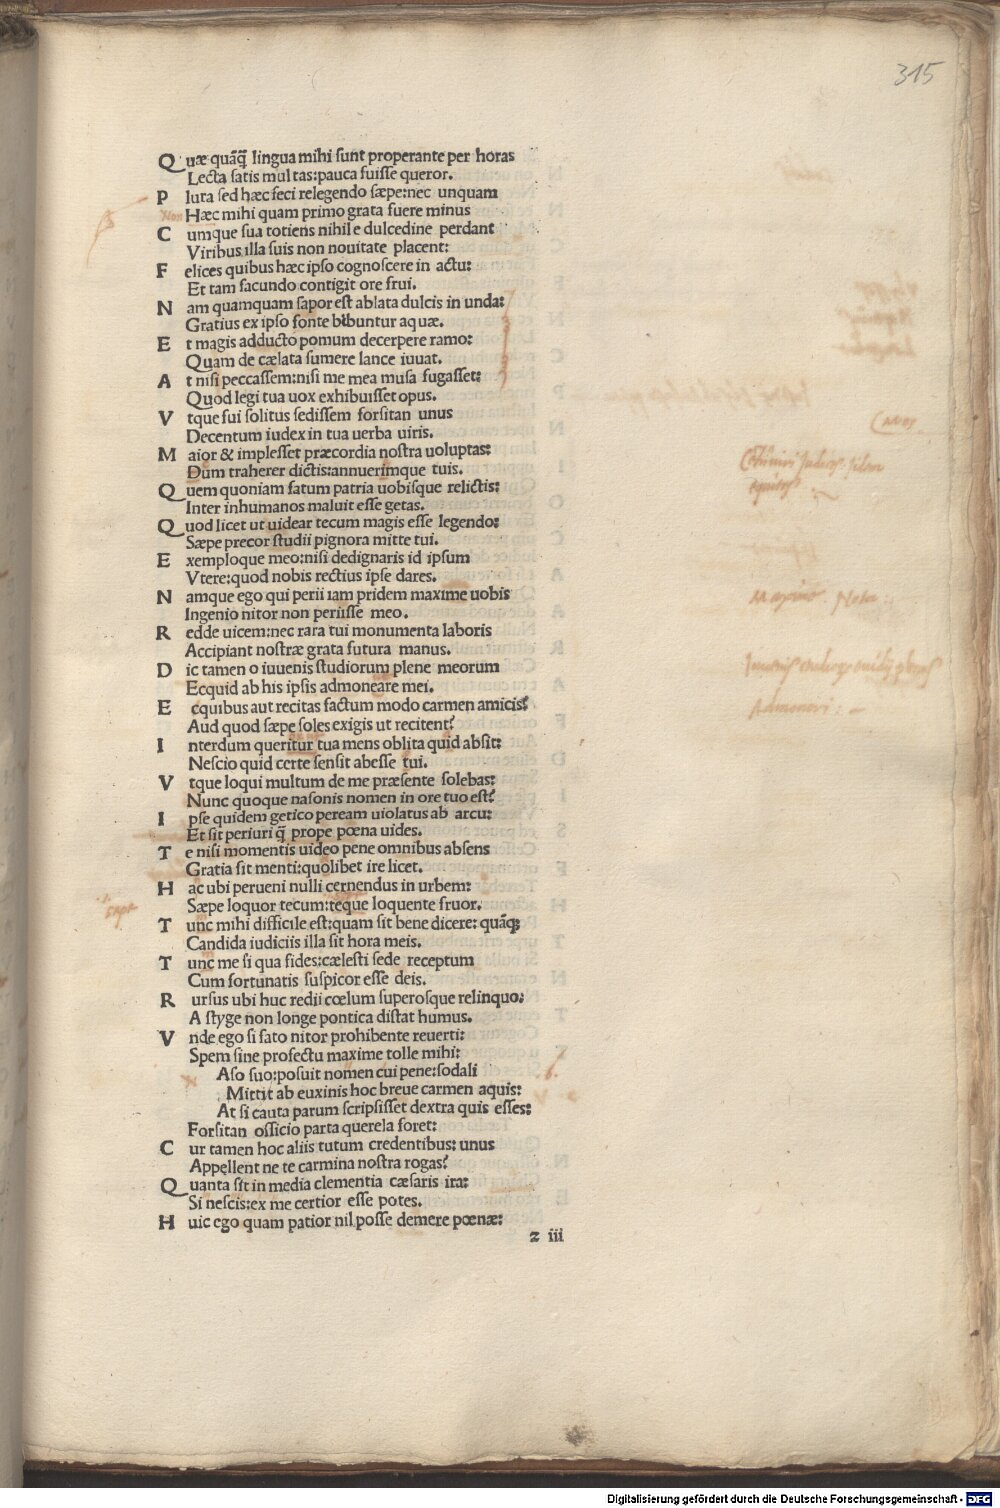 315
Quæ quãq̃ lingua mihi sunt properante per horas
Lecta satis multas:pauca fuisse queror.
Plura sed hæc feci relegendo sæpe:nec unquam
Non Hæc mihi quam primo grata fuere minus
Cumque sua totiens nihil e dulcedine perdant
Viribus illa suis non nouitate placent:
Felices quibus hæc ipso cognoscere in actu:
Et tam facundo contigit ore frui.
Nam quamquam sapor est ablata dulcis in unda:
Gratius ex ipso fonte bibuntur aquæ.
Et magis adducto pomum decerpere ramo:
Quam de cælata sumere lance iuuat.
At nisi peccassem:nisi me mea musa fugasset:
Quod legi tua uox exhibuisset opus.
Vtque fui solitus sedissem forsitan unus
Decentum iudex in tua uerba uiris.
Maior & implesset præcordia nostra uoluptas:
Dum traherer dictis:annuerimque tuis.
Quem quoniam fatum patria uobisque relictis:
Inter inhumanos maluit esse getas.
Quod licet ut uidear tecum magis esse legendo:
Sæpe precor studii pignora mitte tui.
Exemploque meo:nisi dedignaris id ipsum
Vtere:quod nobis rectius ipse dares.
Namque ego qui perii iam pridem maxime uobis
Ingenio nitor non periisse meo.
Redde uicem:nec rara tui monumenta laboris
Accipiant nostræ grata futura manus.
Dic tamen o iuuenis studiorum plene meorum
Ecquid ab his ipsis admoneare mei.
Ecquibus aut recitas factum modo carmen amicis?
Aud quod sæpe soles exigis ut recitent?
Interdum queritur tua mens oblita quid absit:
Nescio quid certe sensit abesse tui.
Vtque loqui multum de me præsente solebas:
Nunc quoque nasonis nomen in ore tuo est?
Ipse quidem getico peream uiolatus ab arcu:
Et sit periuri q̃ prope pœna uides.
Te nisi momentis uideo pene omnibus absens
Gratia sit menti:quolibet ire licet.
Hac ubi perueni nulli cernendus in urbem:
Sæpe loquor tecum:teque loquente fruor.
Tunc mihi difficile est:quam sit bene dicere: quãq;
Candida iudiciis illa sit hora meis.
Tunc me si qua fides:cælesti sede receptum
Cum fortunatis suspicor esse deis.
Rursus ubi huc redii cœlum superosque relinquo:
A styge non longe pontica distat humus.
Vnde ego si fato nitor prohibente reuerti:
Spem sine profectu maxime tolle mihi:
Aso suo:posuit nomen cui pene:sodali
Mittit ab euxinis hoc breue carmen aquis:
At si cauta parum scripsisset dextra quis esses:
Forsitan officio parta querela foret:
Cur tamen hoc aliis tutum credentibus: unus
Appellent ne te carmina nostra rogas?
Quanta sit in media clementia cæsaris ira:
Si nescis:ex me certior esse potes.
Huic ego quam patior nil posse demere pœnæ:
z iii
Digitalisierung gefördert durch die Deutsche Forschungsgemeinschaft - DFG